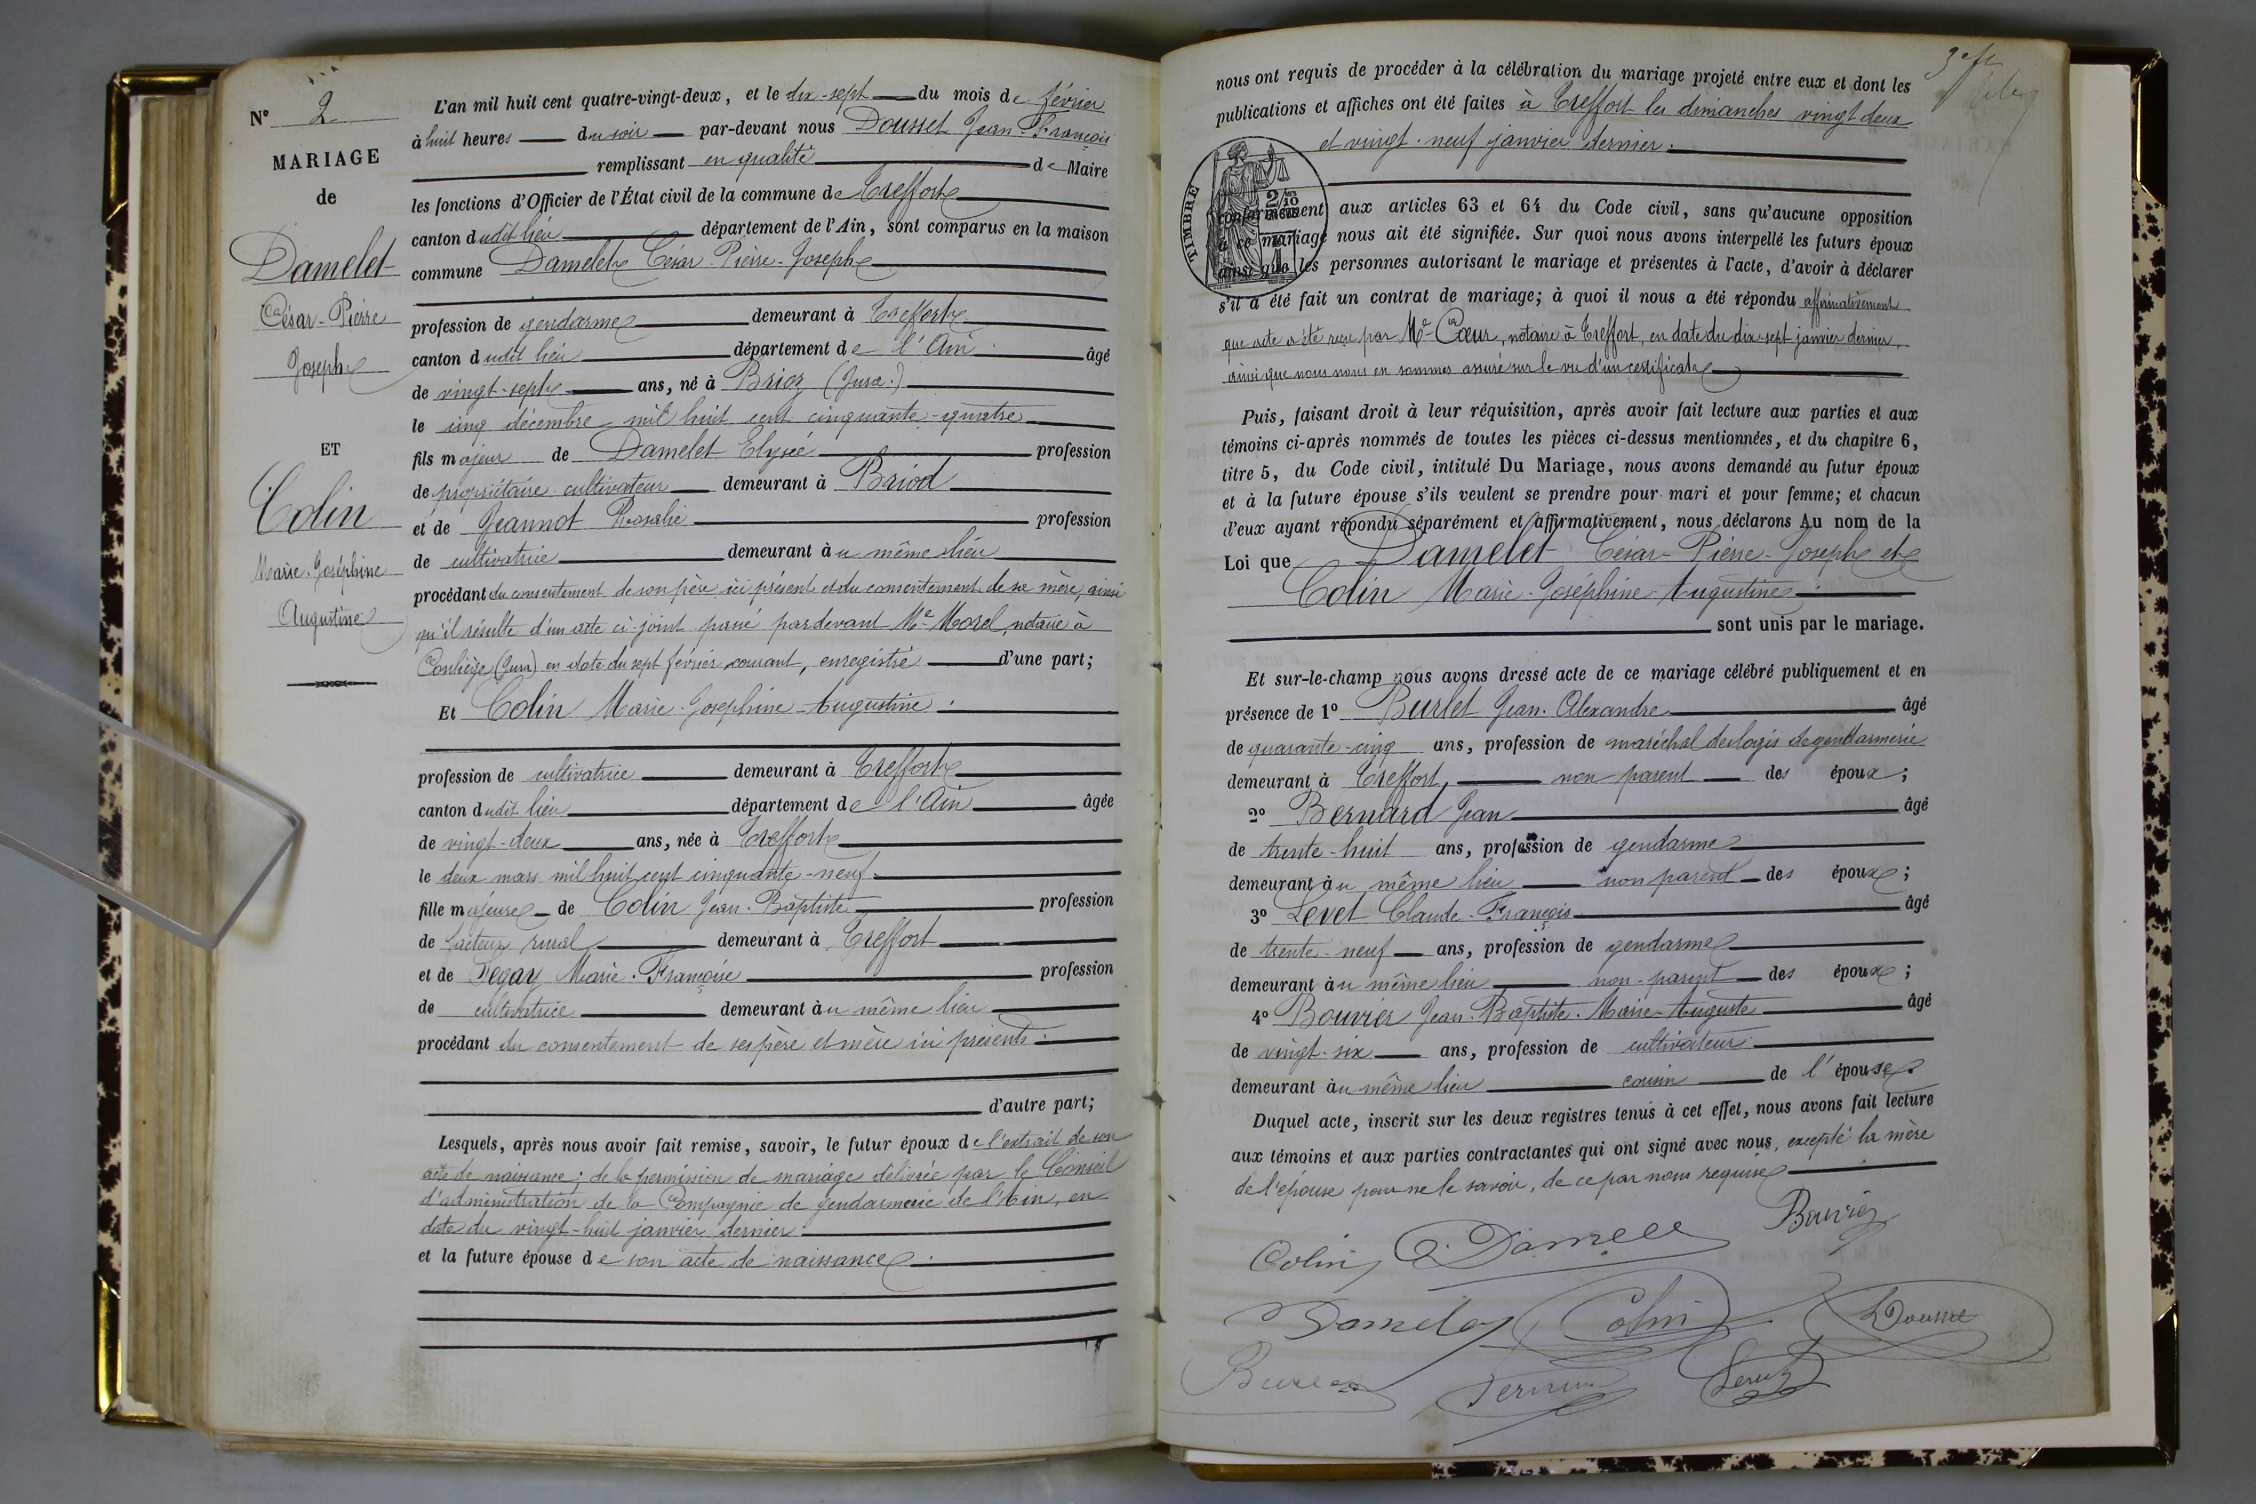 N° 2
MARIAGE
de
Damelet
César-Pierre
Joseph
ET
Colin
Marie-Joséphine
Augustine
L'an mil huit cent quatre-vingt-deux, et le dix-sept du mois de février
à huit heures du soir par-devant nous Dousset Jean-François
remplissant en qualité de Maire
les fonctions d'Officier de l'État civil de la commune de Treffort
canton dudit lieu département de l'Ain, sont comparus en la maison
commune Damelet César-Pierre-Joseph
profession de gendarme demeurant à Treffort
canton dudit lieu département de l'Ain âgé
de vingt-sept ans, né à Brioz (Jura.)
le cinq décembre mil huit cent cinquante-quatre
fils majeur de Damelet Elysée profession
de propriétaire cultivateur demeurant à Briod
et de Jeannot Rosalie profession
de cultivatrice demeurant au même lieu
procédant du consentement de son père ici présent et du consentement de sa mère, ainsi
qu'il résulte d'un acte ci-joint passé pardevant Me Morel, notaire à
Conliège (Jura) en date du sept février courant, enregistré d'une part;
Et Colin Marie-Joséphine-Augustine.
profession de cultivatrice demeurant à Treffort
canton dudit lieu département de l'Ain âgée
de vingt-deux ans, née à Treffort
le deux mars mil huit cent cinquante-neuf.
fille majeure de Colin Jean-Baptiste profession
de facteur rural demeurant à Treffort
et de Marie-Françoise profession
de cultivatrice demeurant au même lieu
procédant du consentement de ses père et mère ici présents.
d'autre part;
Lesquels, après nous avoir fait remise, savoir, le futur époux de l'extrait de son
acte de naissance; de la permission de mariage délivrée par le Conseil
d'administration de la Compagnie de gendarmerie de l'Ain, en
date du vingt-huit janvier dernier
et la future épouse de son acte de naissance.
nous ont requis de procéder à la célébration du mariage projeté entre eux et dont les
publications et affiches ont été faites à Treffort les dimanches vingt deux
et vingt-neuf janvier dernier.
TIMBRE
2/10
conformément aux articles 63 et 64 du Code civil, sans qu'aucune opposition
à ce mariage nous ait été signifiée. Sur quoi nous avons interpellé les futurs époux
ainsi que les personnes autorisant le mariage et présentes à l'acte, d'avoir à déclarer
s'il a été fait un contrat de mariage; à quoi il nous a été répondu affirmativement
que acte a été reçu par Me Cœur, notaire à Treffort, en date du dix-sept janvier dernier,
ainsi que nous nous en sommes assuré sur le vu d'un certificat
Puis, faisant droit à leur réquisition, après avoir fait lecture aux parties et aux
témoins ci-après nommés de toutes les pièces ci-dessus mentionnées, et du chapitre 6,
titre 5, du Code civil, intitulé Du Mariage, nous avons demandé au futur époux
et à la future épouse s'ils veulent se prendre pour mari et pour femme; et chacun
d'eux ayant répondu séparément et affirmativement, nous déclarons Au nom de la
Loi que Damelet César-Pierre-Joseph et
Colin Marie-Joséphine-Augustine.
sont unis par le mariage.
Et sur-le-champ nous avons dressé acte de ce mariage célébré publiquement et en
présence de 1° Burlet Jean-Alexandre âgé
de quarante-cinq ans, profession de maréchal des logis de gendarmerie
demeurant à Treffort, non parent des époux;
2° Bernard Jean âgé
de trente-huit ans, profession de gendarme
demeurant au même lieu non parent des époux;
3° Levet Claude-François âgé
de trente-neuf ans, profession de gendarme
demeurant au même lieu non-parent des époux;
4° Bouvier Jean-Baptiste-Marie-Auguste âgé
de vingt-six ans, profession de cultivateur
demeurant au même lieu cousin de l'épouse.
Duquel acte, inscrit sur les deux registres tenus à cet effet, nous avons fait lecture
aux témoins et aux parties contractantes qui ont signé avec nous, excepté la mère
de l'épouse pour ne le savoir, de ce par nous requise
Bouvier
Colin
Colin